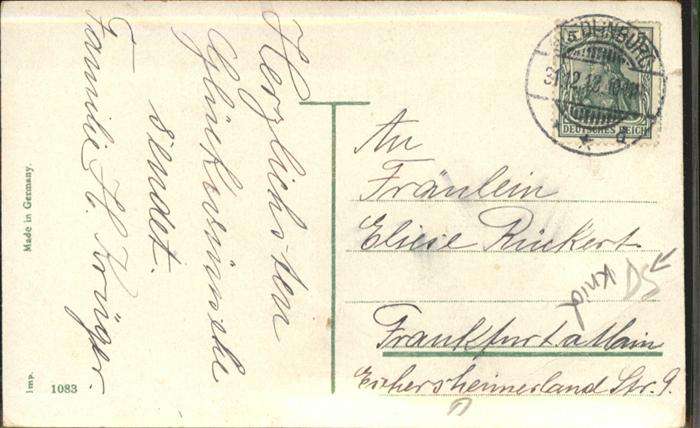 Herzlichsten
Glückwünsche
sendet.
Familie H. Krüger.
Made in Germany.
Imp. 1083
QUEDLINBURG
31.12.12.
* * d
DEUTSCHES REICH
An
Fräulein
Eliese Rückert
Frankfurt a Main
Eschersheimerland Str. 9.
DS